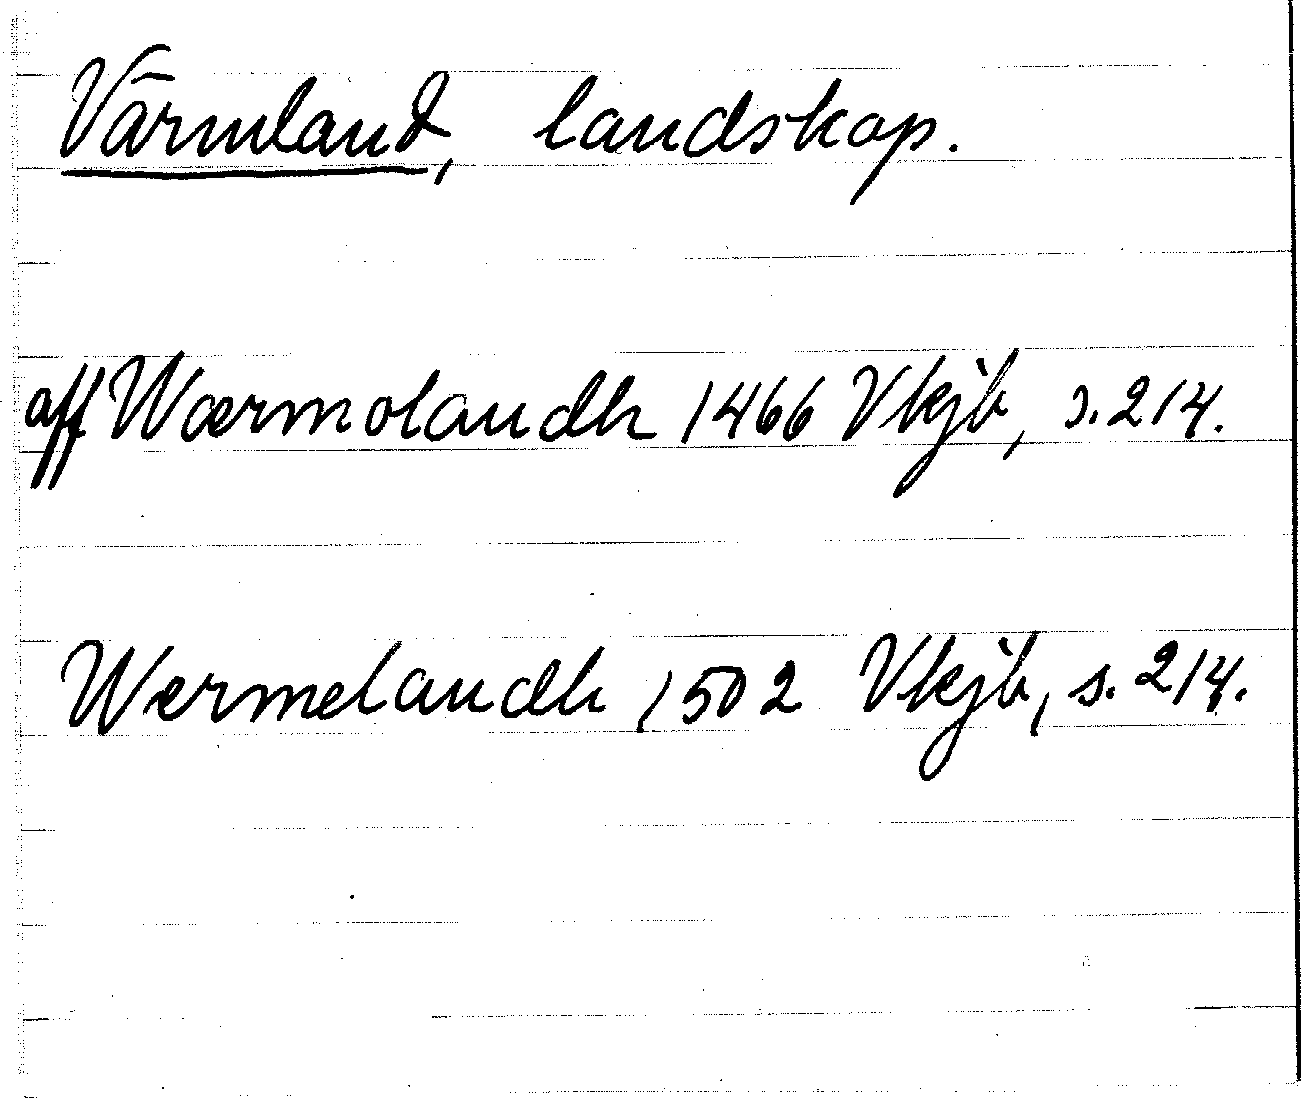 Värmland, landskap.
aff Wærmolandh 1466 Vkjb, s. 214.
Wermelandh 1502 Vkjb, s. 214.